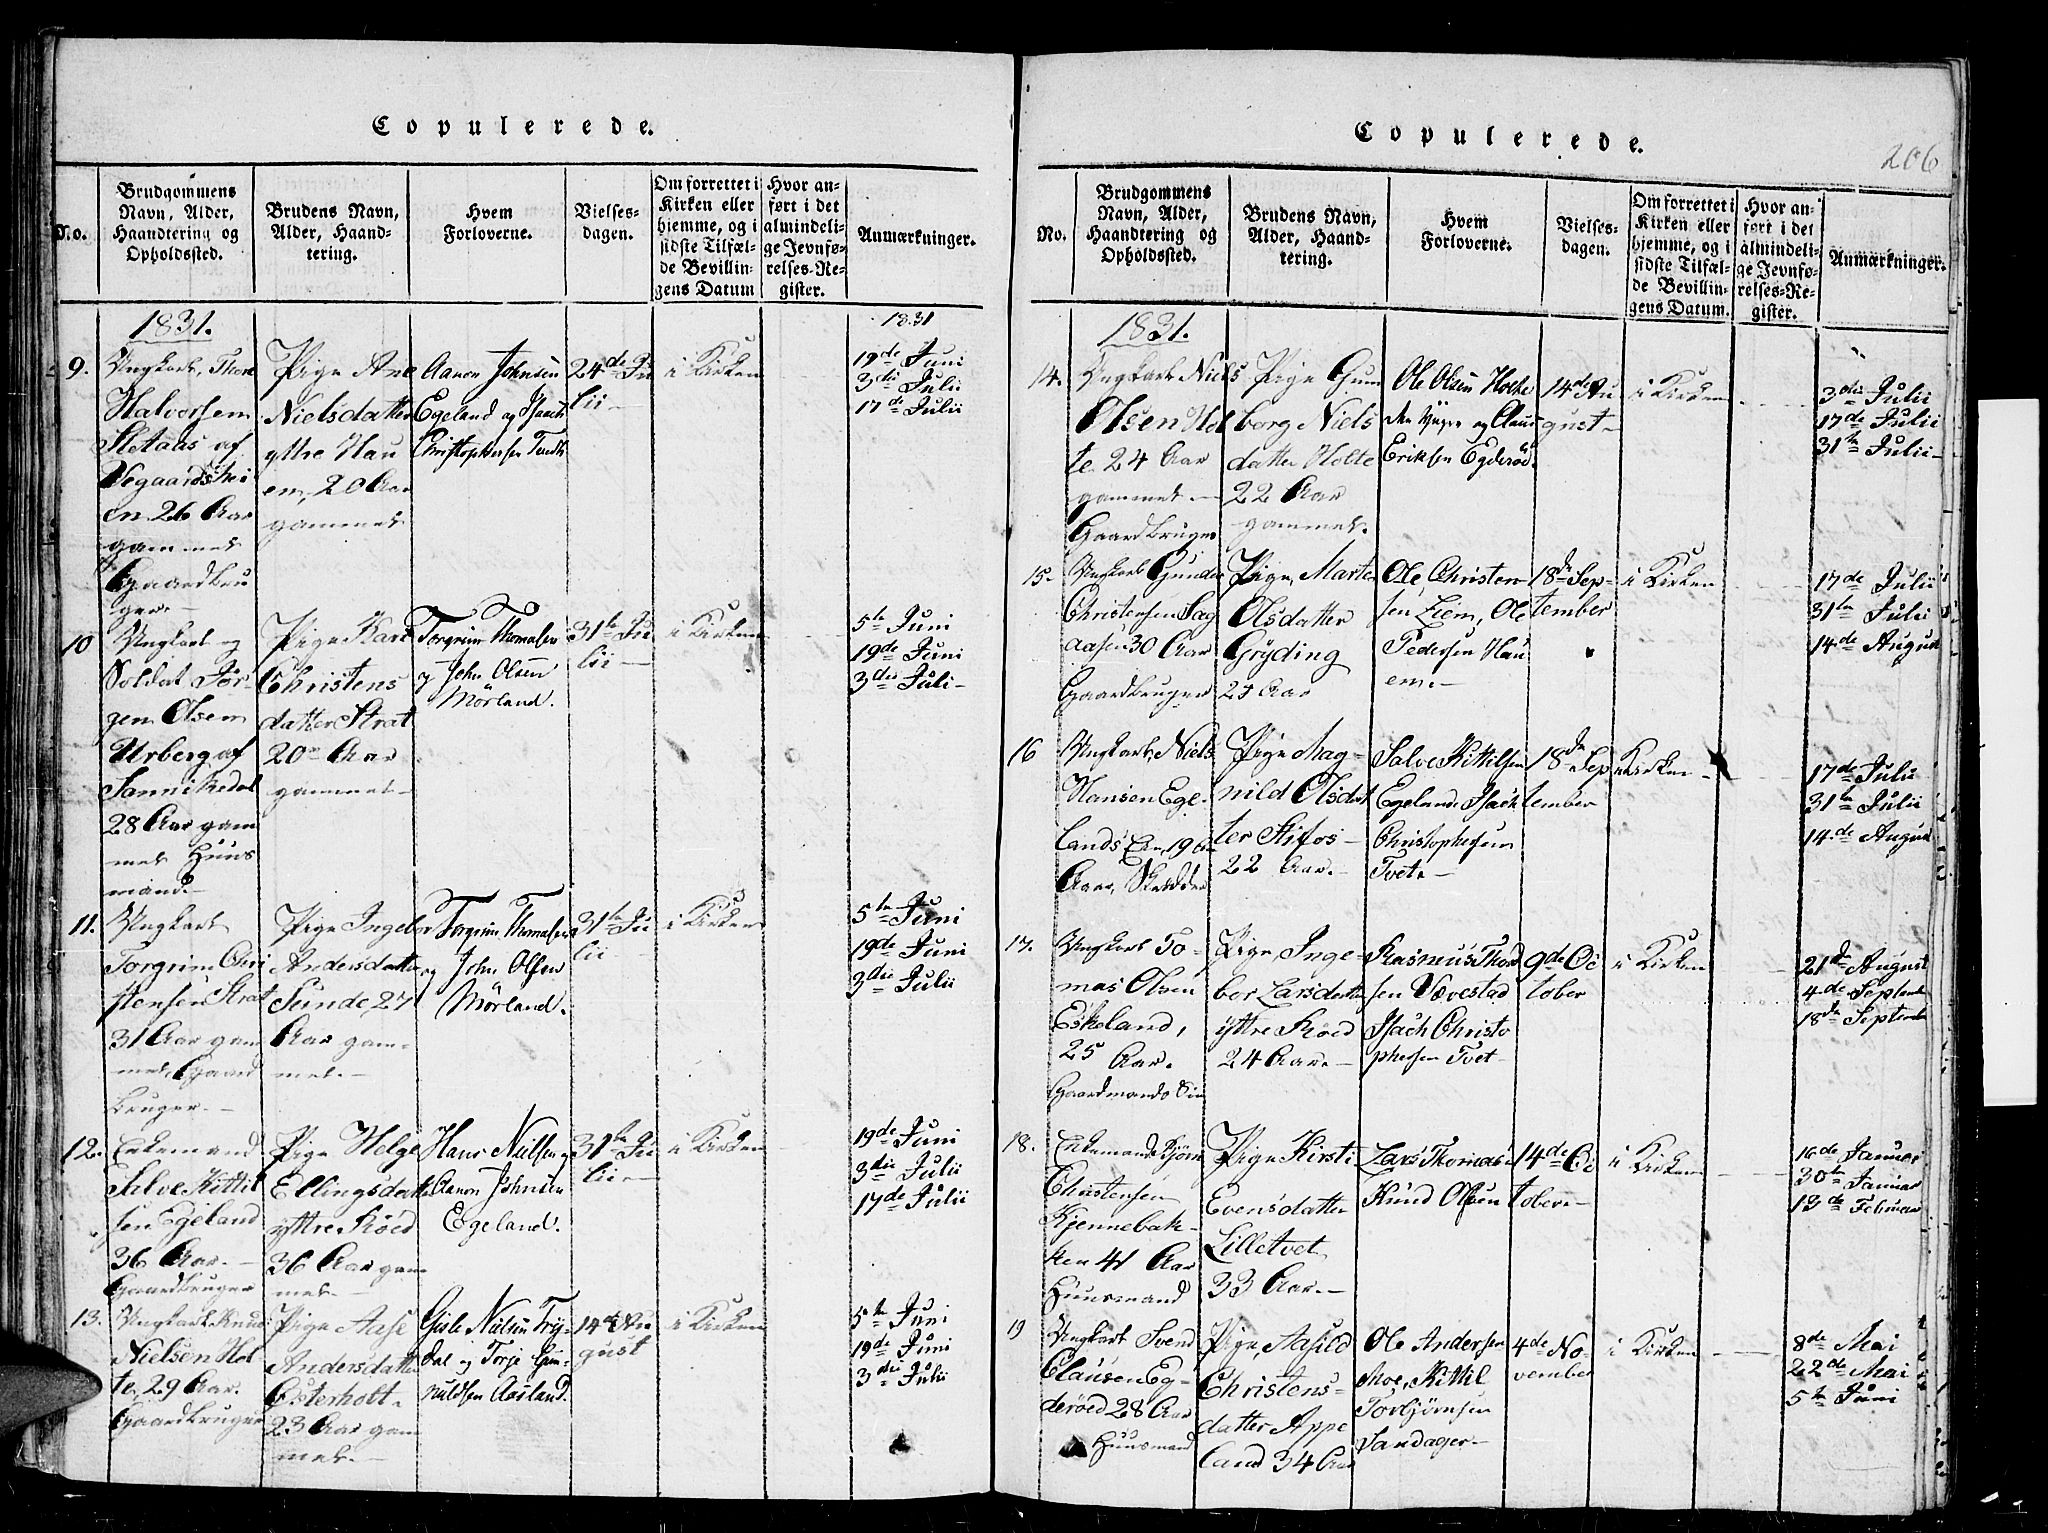 Copulerede.
No.
Brudgommens
Navn, Alder,
Haandtering og
Opholdssted.
Brudens Navn,
Alder, Haand-
tering.
Hvem
Forloverne.
Vielses-
dagen.
Om forrettet i
Kirken eller
hjemme, og i
sidste Tilfæl-
de Bevillin-
gens Datum
Hvor an-
ført i det
almindeli-
ge Jevnfø-
relses-Re-
gister.
Anmærkninger.
1831.
1831
9.
Ungkarl, Thore
Halvorsen
af
26 Aar
gammel
Gaardbru
ger.-
Pige Ane
Nielsdatter
yttre Hau
en, 20 Aar
gammel
Aanon Johnsen
Egeland og Isach
Christophersen
24de Ju
lii-
i Kirken
19de Juni
3die Julii
17de Julii
10
Ungkarl og
Soldat Jør-
gen Olsen
Urberg af
Sannikedal
28 Aar gam
mel Huus
mand.-
Pige Kari
Christens
datter Strat
20 Aar
gammel-
Torgrim Thomasen
John Olsen
Mørland.
31te Ju
lii-
i Kirken
5te Juni
19de Juni
3die Juli-
11.
Ungkarl
Torgrim Chri
stensen Strat
31 Aar gam
mel, Gaard
bruger.-
Pige Ingebor
Andersdatter
Sunde 27
Aar gam-
mel.-
Torgrim Thomasen
og John Olsen
Mørland.
31te Ju
lii-
i Kirken
5te Juni
19de Juni
3die Julii
12.
Enkemand
Salve Kittil
sen Egeland
36 Aar.-
Gaardbruger
Pige Helge
Ellingsdatter
yttre Røed
36 Aar gam
mel.-
Hans Nielsen og
Aanon Johnsen
Egeland.
31te Ju
lii.-
i Kirken
19de Juni
3die Julii
17de Julii
13.
Ungkarl Knud
Nielsen Hol
te, 29 Aar.
Gaardbruger
Pige Aase
Andersdatter
Østerholt-
23 Aar gam
mel.-
Gisle Nielsen Fry-
dal og Torje Gun-
nuldsen Aasland.
14de Au
gust
i Kirken
5te Juni
19de Juni
3die Julii
Copulerede.
206
No.
Brudgommens
Navn, Alder,
Haandtering og
Opholdssted.
Brudens Navn,
Alder, Haand-
tering.
Hvem
Forloverne.
Vielses-
dagen.
Om forrettet i
Kirken eller
hjemme, og i
sidste Tilfæl-
de Bevillin-
gens Datum.
Hvor an-
ført i det
almindeli-
ge Jevnfø-
relses-Re-
gister.
Anmærkninger.
1831.
14.
Ungkarl Niels
Olsen Hol
te 24 Aar
gammel.-
Gaardbruger
Pige Gun
borg Niels
datter Holte
22 Aar
gammel.
Ole Olsen Holte
den yngre og Claus
Eriksen Egderød.
14de Au
gust-
i Kirken
3die Julii
17de Julii
31te Julii-
15.
Ungkarl Gunder
Christensen Sag
aasen 30 Aar
Gaardbruger
Pige, Marte
Olsdatter
Gryding
25 Aar
Ole Christen
sen Liem, Ole
Pedersen Hau
em.-
18de Sep-
tember
i Kirken
17de Julii
31te Julii
14de August
16
Ungkarl, Niels
Hansen Ege-
lands Em, 19
Aar,
Pige Mag-
nild Olsdat
ter Stifos-
22 Aar.-
Salve Kittilsen
Egeland, Isach
Christophersen
Tvet.-
18de Sep
tember
i Kirken-
17de Julii
31te Julii
14de August
17.
Ungkarl To-
mas Olsen
Eskeland,
25 Aar.
Gaardmands Søn
Pige, Inge-
bor Larsdatter
yttre Røed
24 Aar.-
Rasmus Thord
sen Vævestad
Isach Christo
phersen Tvet-
9de Oc
tober
i Kirken
21de August
4de Septemb
18de Septemb
18.
Enkemand Bjørn
Christensen
Kjennebak-
ken 41 Aar
Huusmand
Pige Kirsti
Evensdatter
Lilletvet
33 Aar.-
Lars Thomas
Knud Olsen
14de Oc
tober.-
i Kirken
16de Januar
30te Januar
13de Februar
19
Ungkarl Svend
Clausen Eg-
derøed 28 Aar
Huusmand
Pige, Aasild
Christens-
datter Appe
land 34 Aar
Ole Andersen
Moe, Kittil
Torbjørnsen
Sandager-
4de No-
vember
i Kirken
8de Mai
22de Mai
5te Juni